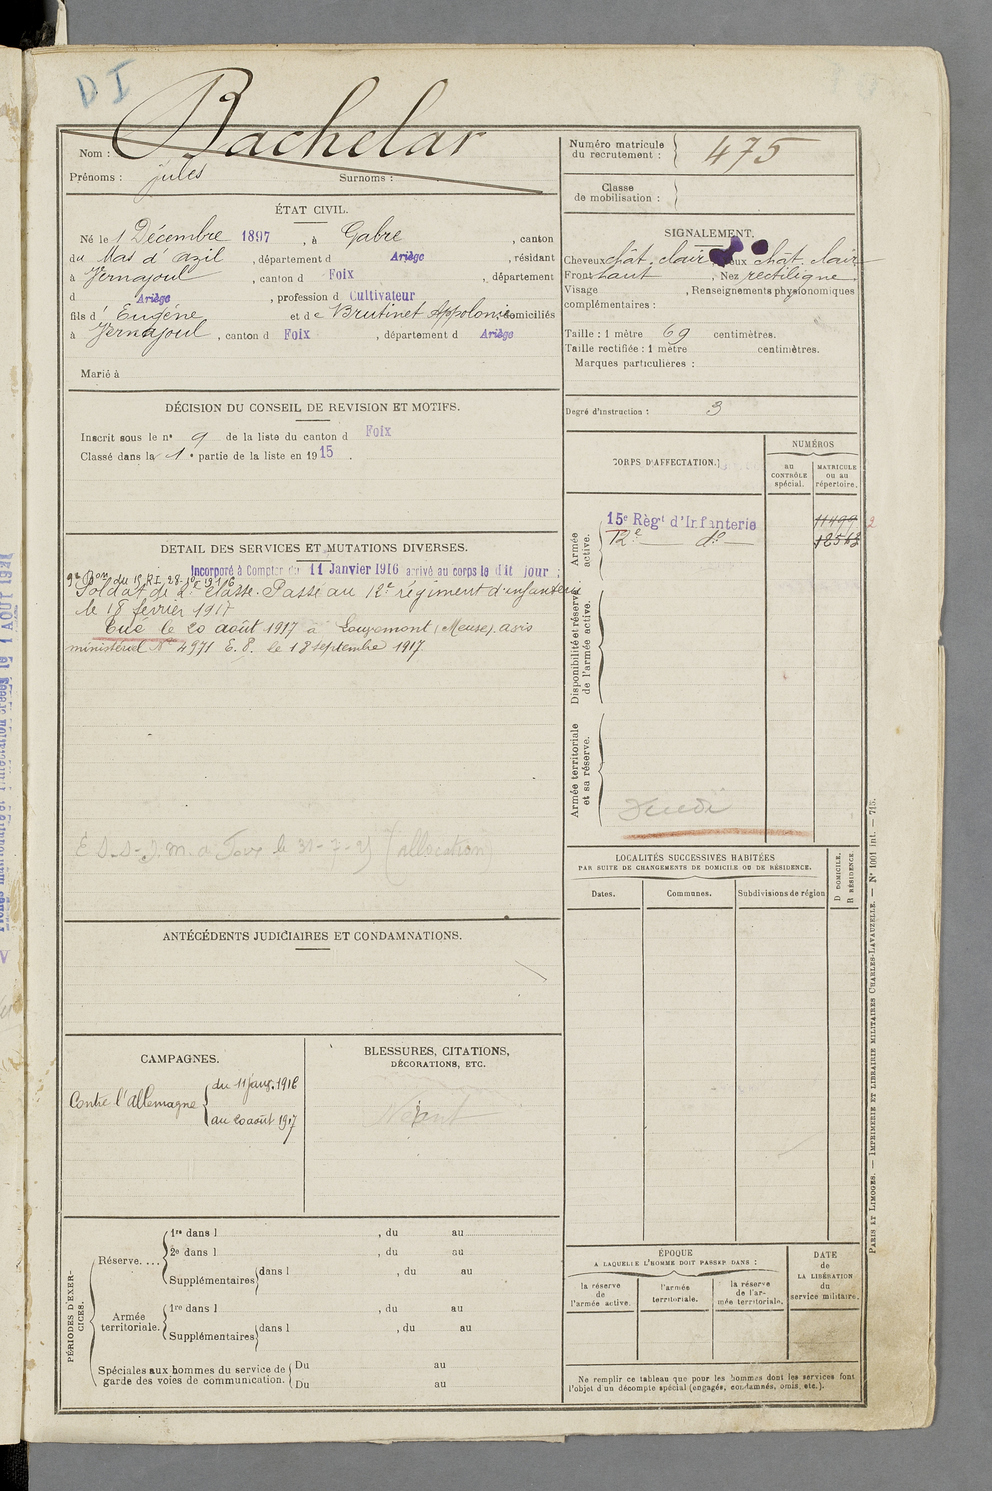 D I
Nom : Bachelar
Prénoms : jules Surnoms :
ÉTAT CIVIL.
Né le 1 Décembre 1897 , à Gabre , canton
du Mas d'azil , département d Ariège , résidant
à Vernajoul , canton d Foix , département
d Ariège , profession d Cultivateur
fils d' Eugéne et de Brutinet Appolonie domiciliés
à Vernajoul , canton d Foix , département d Ariège
Marié à
DÉCISION DU CONSEIL DE REVISION ET MOTIFS.
Inscrit sous le n° 9 de la liste du canton d Foix
Classé dans la 1e partie de la liste en 1915 .
DÉTAIL DES SERVICES ET MUTATIONS DIVERSES.
Incorporé à Compter du 11 Janvier 1916 arrivé au corps le dit jour ;
9e Bon du 15 RI, 28-10-1916
Soldat de 2e classe. Passé au 12e régiment d'infanterie
le 18 février 1917
Tué le 20 août 1917 à (Meuse). avis
ministériel N° 4971 E. P. le 18 septembre 1917.
le 31-7-25 (allocation)
ANTÉCÉDENTS JUDICIAIRES ET CONDAMNATIONS.
CAMPAGNES.
Contre l'allemagne du 11 janv. 1916
au 20 août 1917
BLESSURES, CITATIONS,
DÉCORATIONS, ETC.
Néant
PÉRIODES D'EXER-
CICES.
Réserve....
1re dans l , du au
2e dans l , du au
Supplémentaires dans l , du au
Armée
territoriale.
1re dans l , du au
Supplémentaires dans l , du au
Spéciales aux hommes du service de
garde des voies de communication.
Du au
Du au
Numéro matricule
du recrutement : 475
Classe
de mobilisation :
SIGNALEMENT.
Cheveux chât. clair Yeux chat. clair
Front haut , Nez rectiligne
Visage , Renseignements physionomiques
complémentaires :
Taille : 1 mètre 69 centimètres.
Taille rectifiée : 1 mètre centimètres.
Marques particulières :
Degré d'instruction : 3
CORPS D'AFFECTATION.
NUMÉROS
au
CONTRÔLE
spécial.
MATRICULE
ou au
répertoire.
Armée
active.
15e Règt d'Infanterie 11499
12e do 12563
Disponibilité et réserve
de l'armée active.
Armée territoriale
et sa réserve.
LOCALITÉS SUCCESSIVES HABITÉES
PAR SUITE DE CHANGEMENTS DE DOMICILE OU DE RÉSIDENCE.
Dates. Communes. Subdivisions de région
D DOMICILE.
R RÉSIDENCE.
ÉPOQUE
A LAQUELLE L'HOMME DOIT PASSER DANS :
la réserve
de
l'armée active.
l'armée
territoriale.
la réserve
de l'ar-
mée territoriale.
DATE
de
LA LIBÉRATION
du
service militaire.
Ne remplir ce tableau que pour les hommes dont les services font
l'objet d'un décompte spécial (engagés, condamnés, omis, etc.).
PARIS ET LIMOGES. — IMPRIMERIE ET LIBRAIRIE MILITAIRES CHARLES-LAVAUZELLE. — N° 1001 int. — 715.